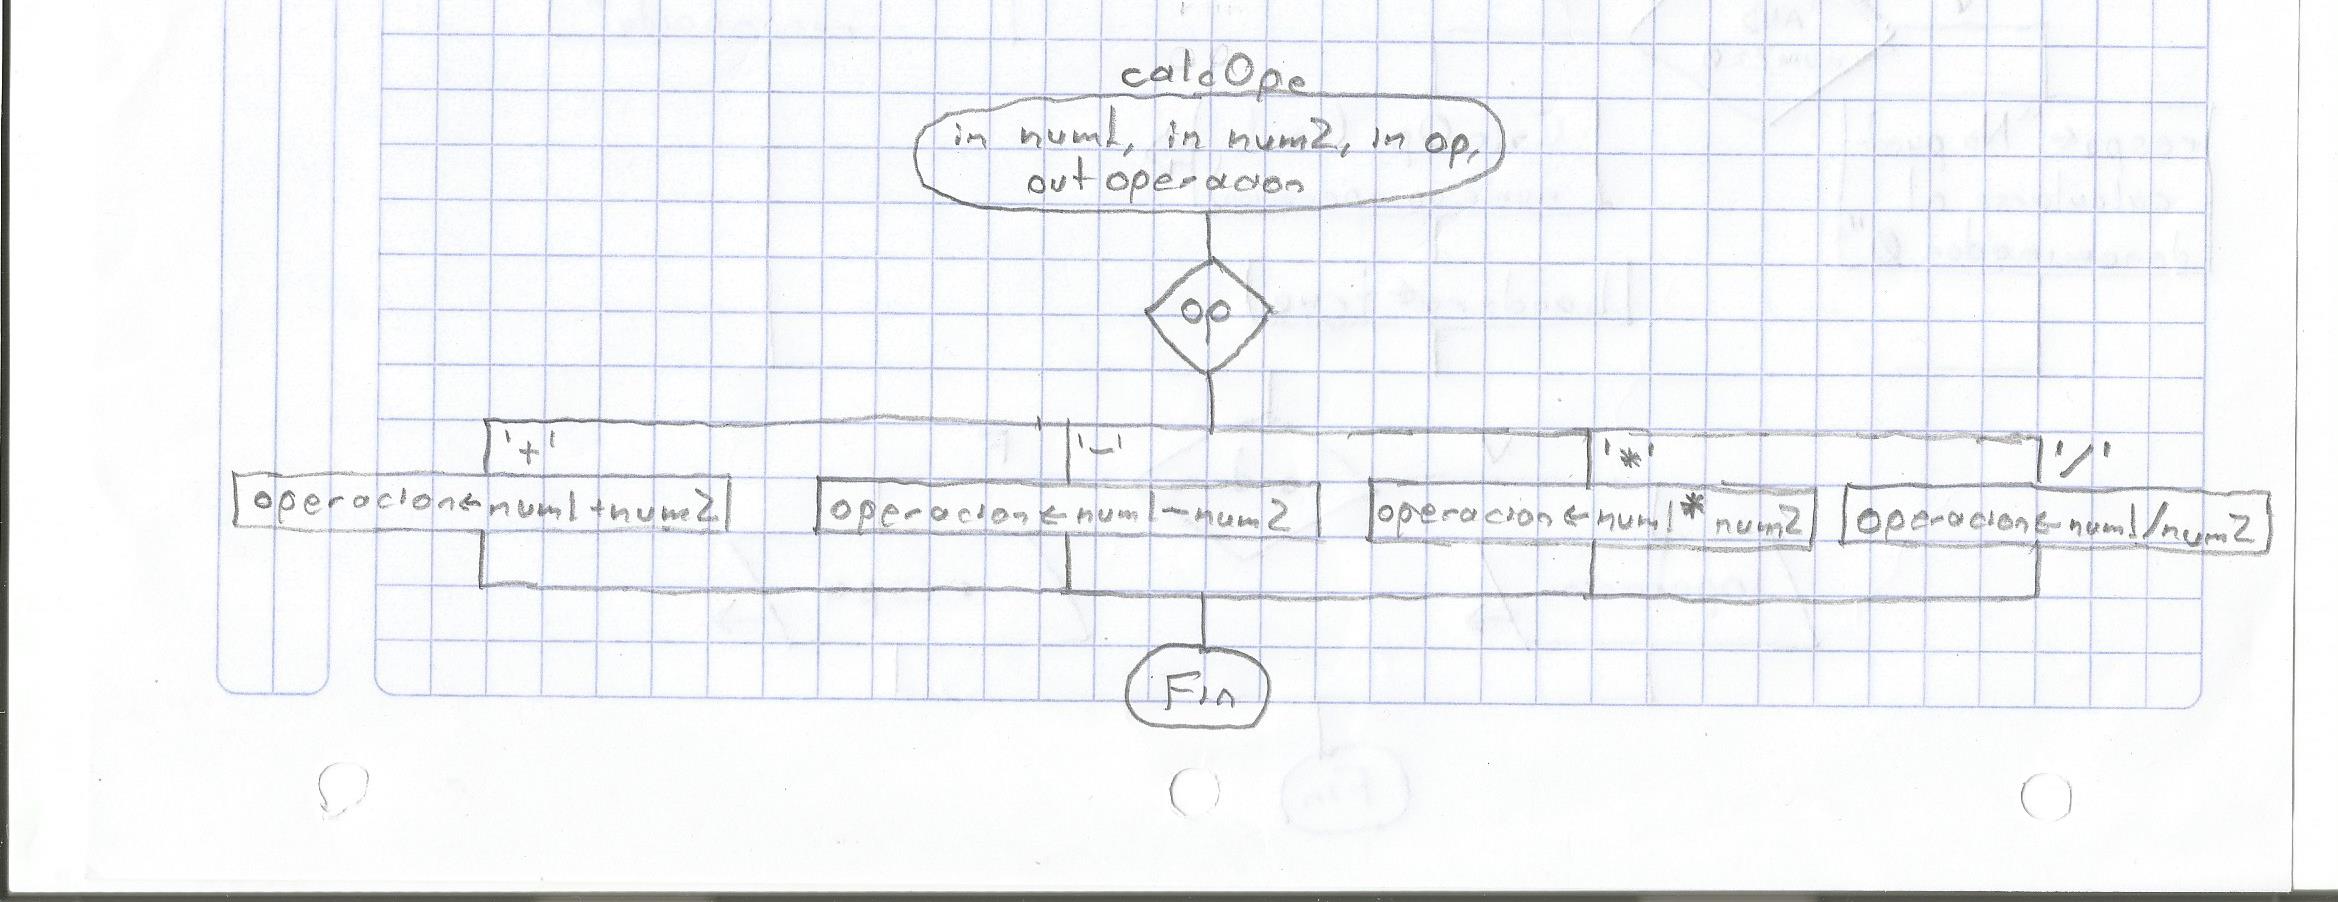 calcOpe
in num1, in num2, in op,
out operacion
op
'+'
'-'
'*'
'/'
operacion←num1+num2
operacion←num1-num2
operacion←num1*num2
operacion←num1/num2
Fin